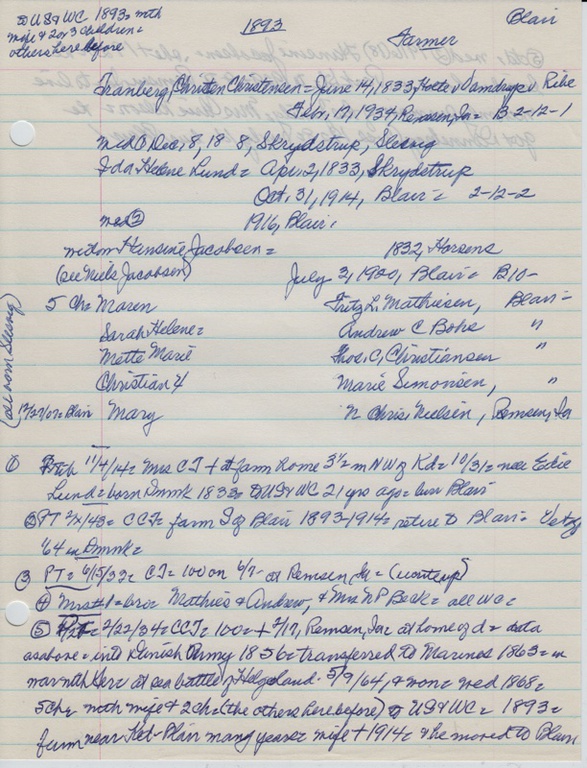 to US & WC 1893= with
wife & 2 or 3 children=
others here before
1893
Blair
Farmer
Tranberg, Christen Christensen = June 14, 1833, Ribe
Feb. 17, 1934, Remsen, Ia= B-2-12-1
md ① Dec, 8, 18 8, Skrydstrup, Slesvig
Ida Helene Lund= Apr. 2, 1833, Skrydstrup
Oct. 31, 1914, Blair= 2-12-2
md ② 1916, Blair,
widow Hansine Jacobsen= 1832, Horsens
(see Niels Jacobsen) July 3, 1920, Blair= B10-
5 Ch= Maren Fritz L. Mathiesen, Blair=
Sarah Helene= Andrew C Bohs "
Mette Marie Thos. C, Christiansen "
Christian Marie Simonsen, "
12/27/07= Blair Mary N Chris Nielsen, Remsen, Ia
(all born Slesvig)
① 11/4/14= Mrs CT + at farm Rome 3½ m NW of Kd= 10/31= nee
Lund= born Dmmk 1833= to US & WC 21 yrs ago= bur Blair
② PT CCT= farm S of Blair 1893-1914= retire to Blair=
'64 in Dmmk=
③ PT= 6/15/33= CT= 100 on 6/7- at Remsen, Ia= (writeup)
④ Mrs #1= bro= Mathies & Andrew, & Mrs NP Beck= all WC=
⑤ 2/22/34= CCT= 100= + 2/17, Remsen, Ia= at home of d= data
as above= into Danish Army 1856= transferred to Marines 1863= in
war with at sea battle of Helgoland- 5/9/64, & won= wed 1868=
5 ch= with wife & 2 ch= (the others here before) to US & WC= 1893=
farm near Blair many years= wife + 1914= & he moved to Blair